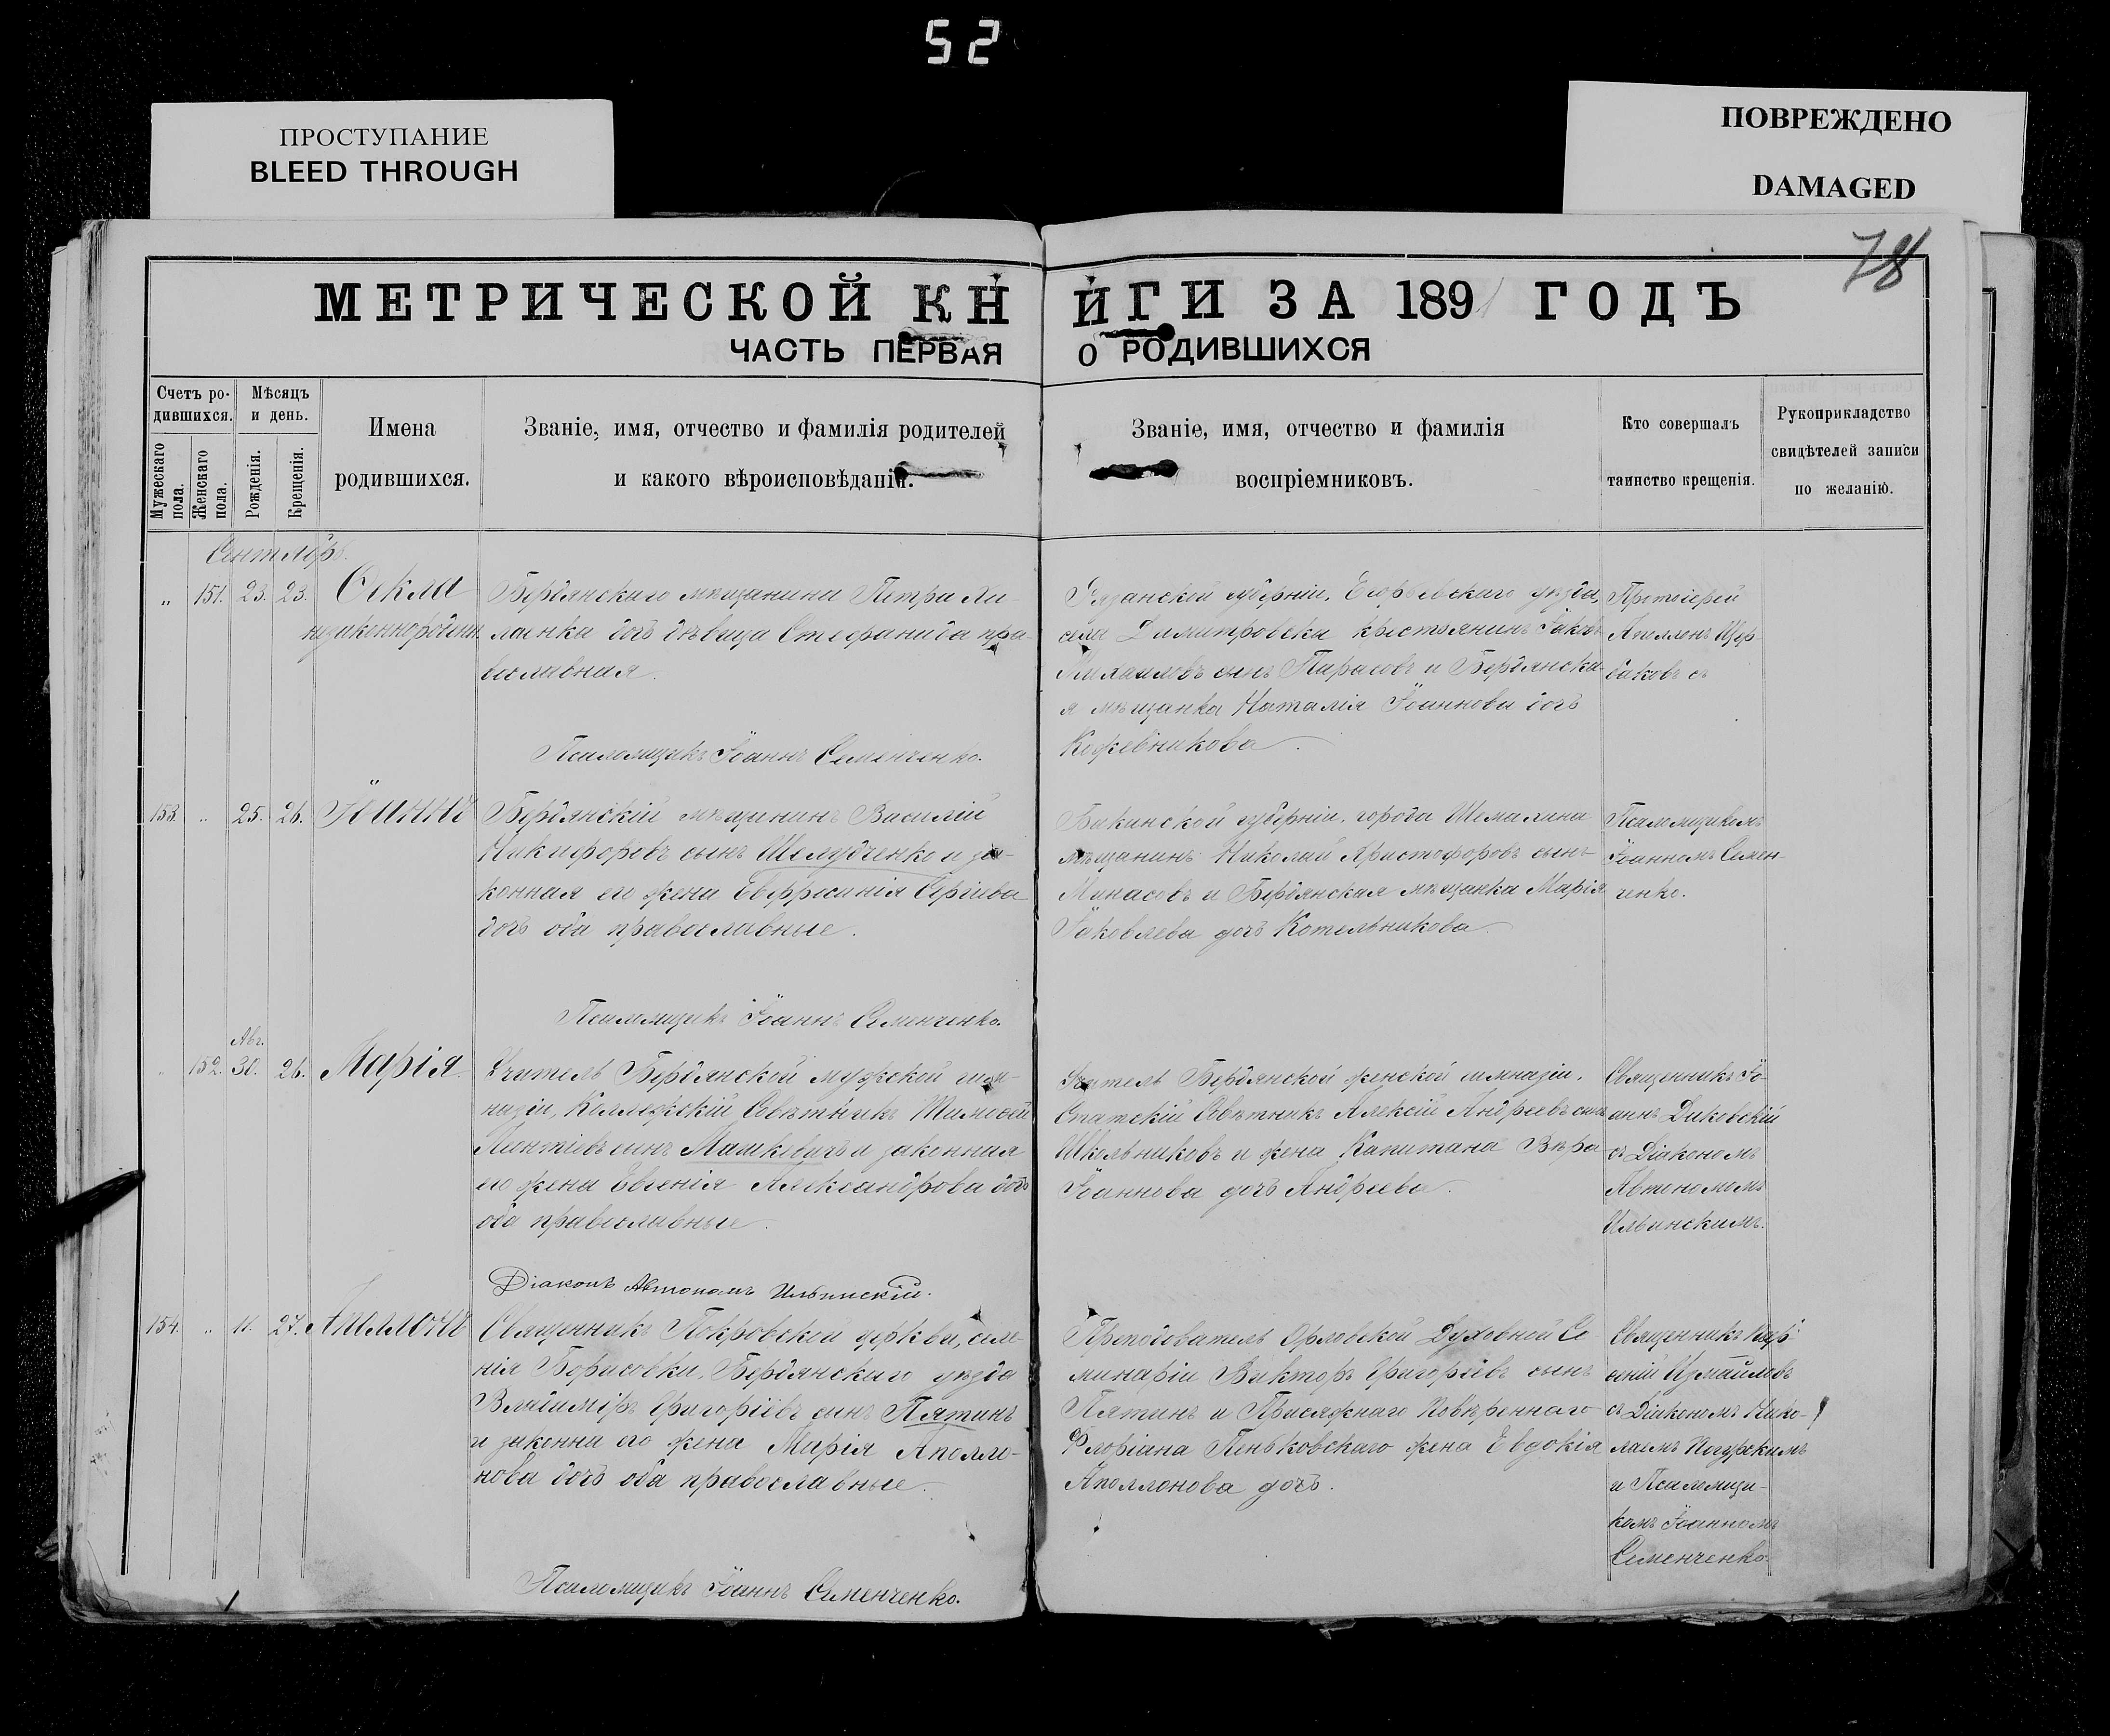 52
ПРОСТУПАНИЕ
BLEED THROUGH
ПОВРЕЖДЕНО
DAMAGED
78
МЕТРИЧЕСКОЙ КНИГИ ЗА 1891 ГОДЪ
ЧАСТЬ ПЕРВАЯ О РОДИВШИХСЯ
Счетъ ро-
дившихся.
Мужескаго
пола.
Женскаго
пола.
Мѣсяцъ
и день.
Рожденія.
Крещенія.
Имена
родившихся.
Званіе, имя, отчество и фамилія родителей
и какого вѣроисповѣданія.
Званіе, имя, отчество и фамилія
воспріемниковъ.
Кто совершалъ
таинство крещенія.
Рукоприкладство
свидѣтелей записи
по желанію.
Сентябрь.
„ 151. 23. 23. Ѳекла
незаконнорожден.
Бердянскаго мѣщанина Петра
дочь дѣвица Стефанида пра-
вославная.
Псаломщикъ Іоаннъ Семенченко.
Рязанской губерніи, Егорьевскаго уѣзда,
села Димитровска крестьянинъ Іаковъ
Михаиловъ сынъ Тарасовъ и Бердянска-
я мѣщанка Наталія Іоаннова дочь
Кожевникова.
Протоіерей
Аполлонъ
съ
153. „ 25. 26. Іоаннъ
Бердянскій мѣщанинъ Василій
Никифоровъ сынъ Шелудченко и за-
конная его жена Евфросинія Сергіева
дочь оба православные.
Псаломщикъ Іоаннъ Семенченко.
Бакинской губерніи, города
мѣщанинъ Николай Христофоровъ сынъ
Минасовъ и Бердянская мѣщанка Марія
Іаковлева дочь Котельникова.
Псаломщикомъ
Іоанномъ Семен-
ченко.
Авг.
„ 152. 30. 26. Марія
Учитель Бердянской мужской гим-
назіи, Коллежскій Совѣтникъ Тимоѳей
Леонтіевъ сынъ Машкевичъ и законная
его жена Евгенія Александрова дочь
оба православные.
Діаконъ Автономъ Ильинскій.
Учитель Бердянской женской гимназіи,
Статскій Совѣтникъ Алексій Андреевъ сынъ
Школьниковъ и жена Капитана Вѣра
Іоаннова дочь Андреева.
Священникъ Іо-
аннъ Диковскій
съ Діакономъ
Автономомъ
Ильинскимъ.
154. „ 11. 27. Аполлонъ
Священникъ Покровской церкви, селе-
нія Борисовки, Бердянскаго уѣзда
Владиміръ Григоріевъ сынъ Пятинъ
и законна его жена Марія Аполло-
нова дочь оба православные.
Псаломщикъ Іоаннъ Семенченко.
Преподователь Орловской Духовной Се-
минаріи Викторъ Григоріевъ сынъ
Пятинъ и Присяжнаго Повѣреннаго
Флоріана Пеньковскаго жена Евдокія
Аполлонова дочь.
Священникъ
Измаиловъ
съ Діакономъ Нико-
лаемъ
и Псаломщи-
комъ Іоанномъ
Семенченко.